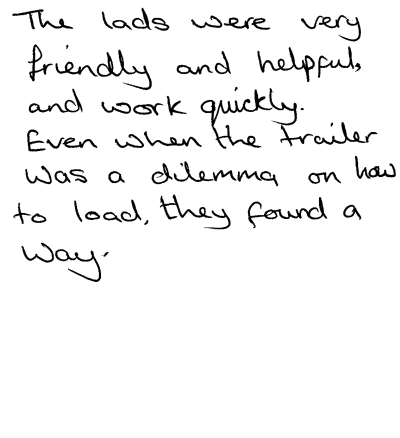 The lads were very
friendly and helpful,
and work quickly.
Even when the trailer
was a dilemma on how
to load, they found a
way.